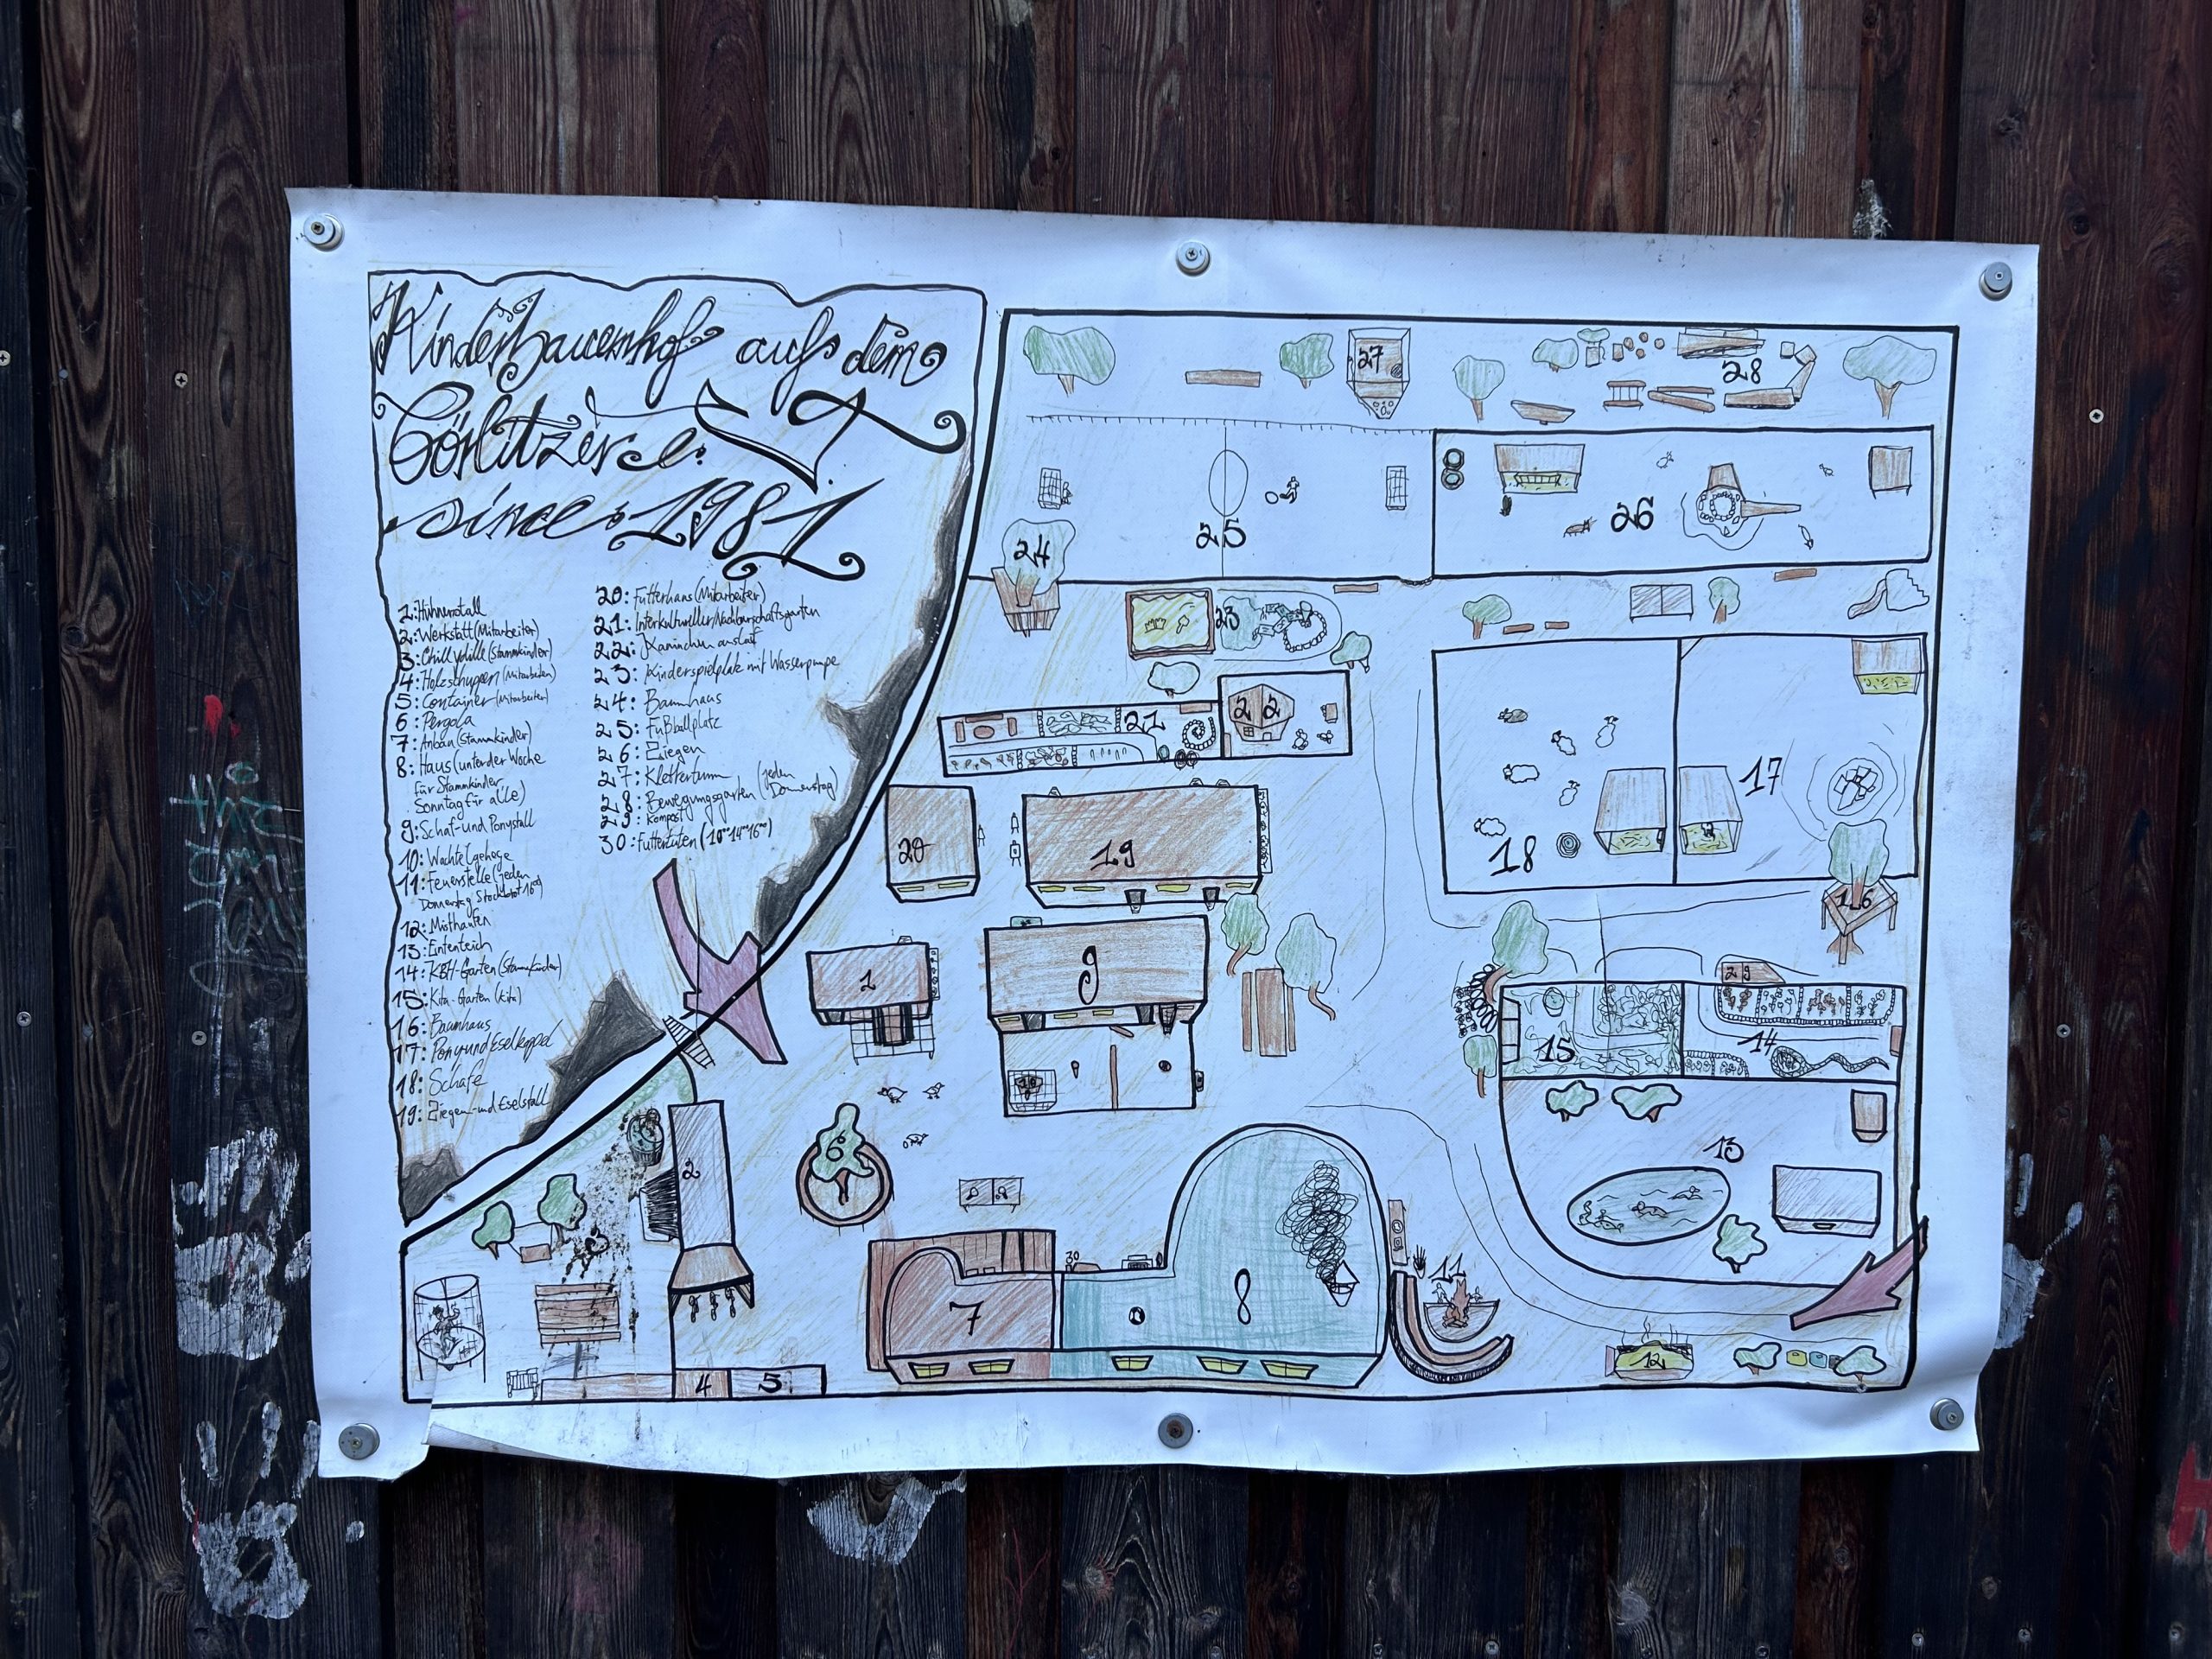 Kinderbauernhof auf dem
Görlitzer e. V.
since: 1981
1: Hühnerstall
2: Werkstatt (Mitarbeiter)
3: Chillydille (Stammkinder)
4: Holzschuppen (Mitarbeiter)
5: Container (Mitarbeiter)
6: Pergola
7: Anbau (Stammkinder)
8: Haus (unter der Woche
für Stammkinder
Sonntag für alle)
9: Schaf- und Ponystall
10: Wachtelgehege
11: Feuerstelle (jeden
Donnerstag Stockbrot 16⁰⁰)
12: Misthaufen
13: Ententeich
14: KBH-Garten (Stammkinder)
15: Kita-Garten (Kita)
16: Baumhaus
17: Pony und Eselkoppel
18: Schafe
19: Ziegen- und Eselstall
20: Futterhaus (Mitarbeiter)
21: Interkultureller Nachbarschaftsgarten
22: Kaninchen auslauf
23: Kinderspielplatz mit Wasserpumpe
24: Baumhaus
25: Fußballplatz
26: Ziegen
27: Kletterturm
28: Bewegungsgarten (jeden Donnerstag)
29: Kompost
30: Futtertüten (10⁰⁰ 14⁰⁰ 16⁰⁰)
27
28
24
25
26
23
21
22
17
18
20
19
16
1
9
29
15
14
10
2
6
13
30
7
8
11
12
4
5